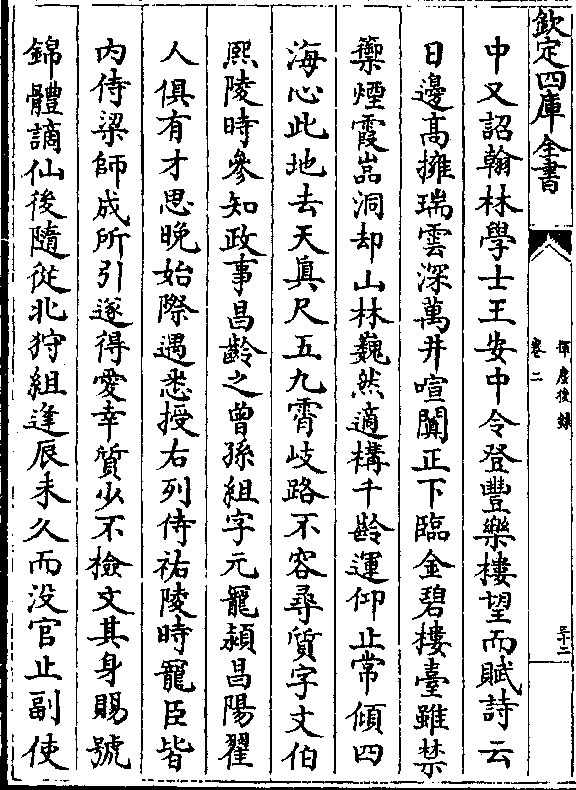 欽定四庫全書
揮麈後錄
卷二
三十二
中又詔翰林學士王安中令登豐樂樓望而賦詩云
日邊髙擁瑞雲深萬井喧闐正下臨金碧樓臺雖禁
籞煙霞嵓洞却山林巍然適構千齡運仰止常傾四
海心此地去天真尺五九霄岐路不容尋質字文伯
熙陵時參知政事昌齡之曾孫組字元寵潁昌陽翟
人俱有才思晚始際遇悉授右列侍祐陵時寵臣皆
内侍梁師成所引遂得愛幸質少不檢文其身賜號
錦體謫仙後隨從北狩組逢辰未久而沒官止副使